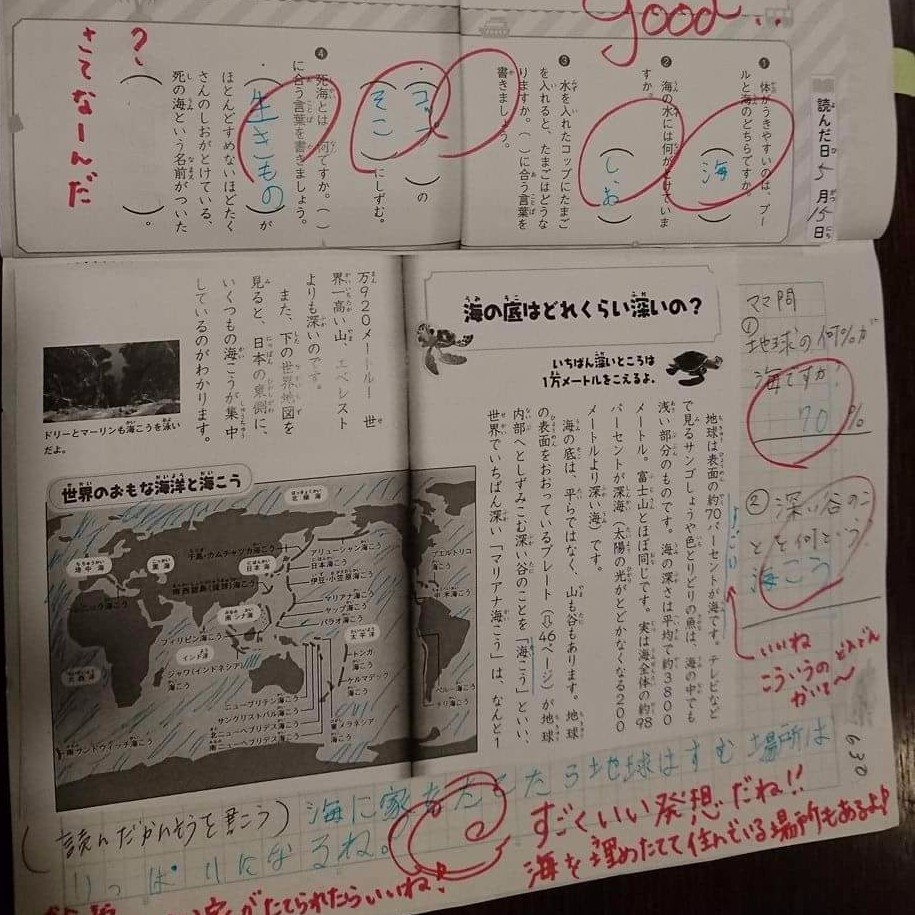 good
読んだ日 5月15日
❶ 体がうきやすいのは、プー
ルと海のどちらですか。
(海)
❷ 海の水には何がとけていま
すか。
(しお)
❸ 水を入れたコップにたまご
を入れると、たまごはどうな
りますか。( )に合う言葉を
書きましょう。
の
(そこ)にしずむ。
❹ 死海とは、何ですか。( )
に合う言葉を書きましょう。
(生きもの)が
ほとんどすめないほどたく
さんのしおがとけている、
死の海という名前がついた
( )。
?
さてなーんだ
海の底はどれくらい深いの?
いちばん深いところは
1万メートルをこえるよ。
地球は表面の約70パーセントが海です。テレビなど
で見るサンゴしょうや色とりどりの魚は、海の中でも
浅い部分のものです。海の深さは平均で約3800
メートル。富士山とほぼ同じです。実は海全体の約98
パーセントが深海(太陽の光がとどかなくなる200
メートルより深い海)です。
海の底は、平らではなく、山も谷もあります。地球
の表面をおおっているプレート(⇩46ページ)が地球
内部へとしずみこむ深い谷のことを「海こう」といい、
世界でいちばん深い「マリアナ海こう」は、なんと1
万920メートル! 世
界一高い山、エベレスト
よりも深いのです。
また、下の世界地図を
見ると、日本の東側に、
いくつもの海こうが集中
しているのがわかります。
ドリーとマーリンも海こうを泳い
だよ。
世界のおもな海洋と海こう
北極海
地中海
黒海
日本海
南シナ海
インド洋
太平洋
大西洋
千島・カムチャツカ海こう
アリューシャン海こう
日本海こう
伊豆・小笠原海こう
南西諸島(琉球)海こう
マリアナ海こう
ヤップ海こう
パラオ海こう
フィリピン海こう
ジャワ(インドネシア)
海こう
トンガ
海こう
ケルマデック
海こう
ニューブリテン海こう
サンクリストバル海こう
北ニューヘブリデス海こう
南ニューヘブリデス海こう
東メラネシア
海こう
プエルトリコ
海こう
中米海こう
ペルー海こう
チリ海こう
南サンドウィッチ海こう
ママ問
① 地球の何%が
海ですか?
70%
② 深い谷のこ
とを何という?
海こう
いいね
こういうの どんどん
かいて〜
630
(読んだかんそうを書こう)
海に家をたてたら地球はすむ場所は
いっぱいになるね。
すごくいい発想だね!!
海を埋めたてて住んでいる場所もあるよ♪
がたてられたらいいね!